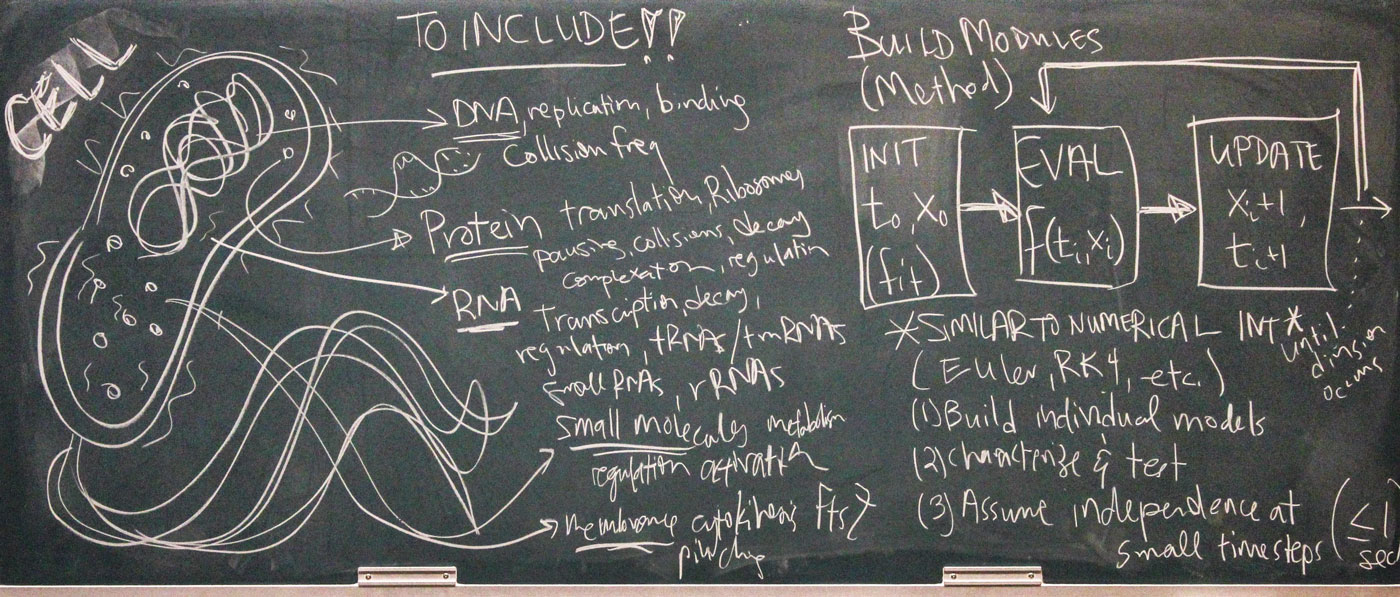 CELL
TO INCLUDE!!
DNA, replication, binding
Collision freq
Protein translation, Ribosomes
pausing, collisions, decay
complexation, regulation
RNA transcription, decay,
regulation, tRNAs/tmRNAs
small RNAs, rRNAs
small molecules metabolism
regulation activation
membrane cytokinesis FtsZ
pinching
BUILD MODULES
(Method)
INIT
t₀, x₀
(fit)
EVAL
f(tᵢ, xᵢ)
UPDATE
xᵢ+1,
tᵢ+1
until
division
occurs
*SIMILAR TO NUMERICAL INT*
(Euler, RK4, etc.)
(1) Build individual models
(2) characterize & test
(3) Assume independence at
small timesteps (≤1
sec